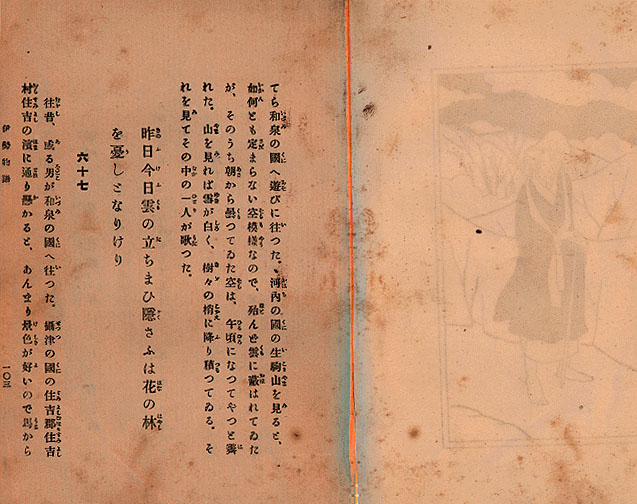 てら和泉の國へ遊びに往つた。河内の國の生駒山を見ると、
如何とも定まらない空模樣なので、殆んど雲に蔽はれてゐた
が、そのうち朝から曇つてゐた空は、午頃になつてやつと霽
れた。山を見れば雪が白く、樹々の梢に降り積つてゐる。そ
れを見てその中の一人が歌つた。
昨日今日雲の立ちまひ隱さふは花の林
を憂しとなりけり
六十七
往昔、或る男が和泉の國へ往つた。攝津の國の住吉郡住吉
村住吉の濱に通り懸かると、あんまり景色が好いので馬から
伊勢物語
一〇三